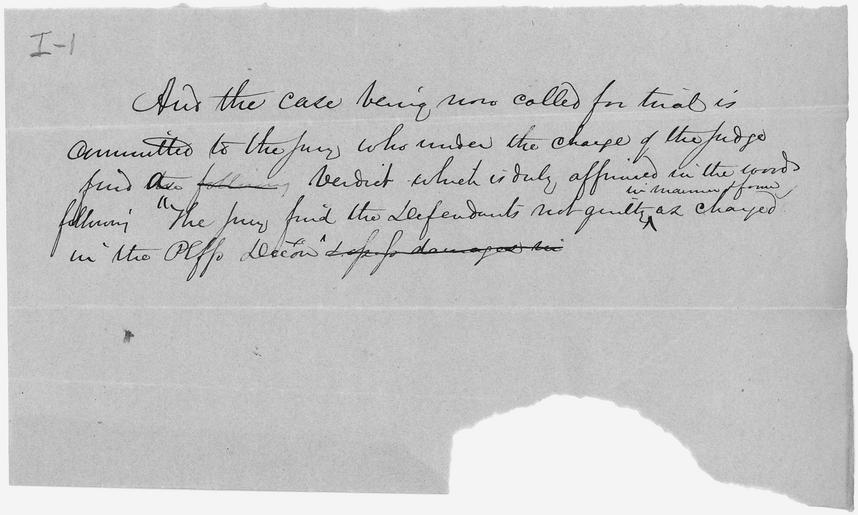 I-1
And the case being now called for trial is
committed to the Jury who under the charge of the Judge
find a following verdict which is duly affirmed in the words
in manner & form
following "The Jury find the Defendants not guilty ^ as charged
in the Plffs Decon" damages in